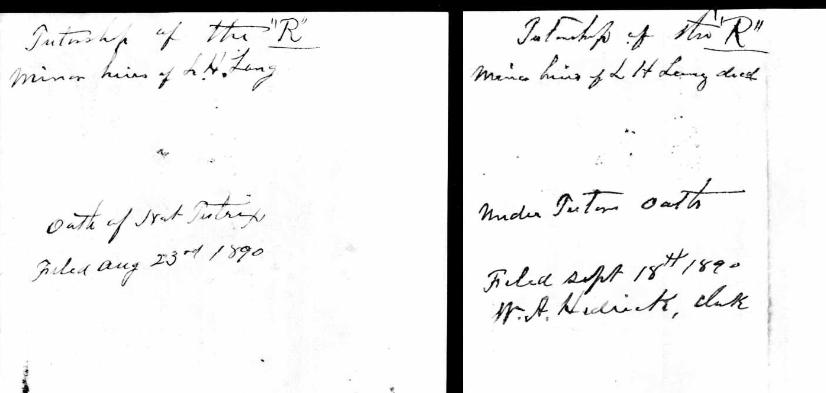 Tutorship of the "R"
Minor hires of L. H. Lang
Oath of Nat Tutrix
Filed Aug 23rd 1890
Tutorship of the "R"
Minor hires of L H Lang decd
Under Tutors oath
Filed sept 18th 1890
W. A. Hedrick, Clerk